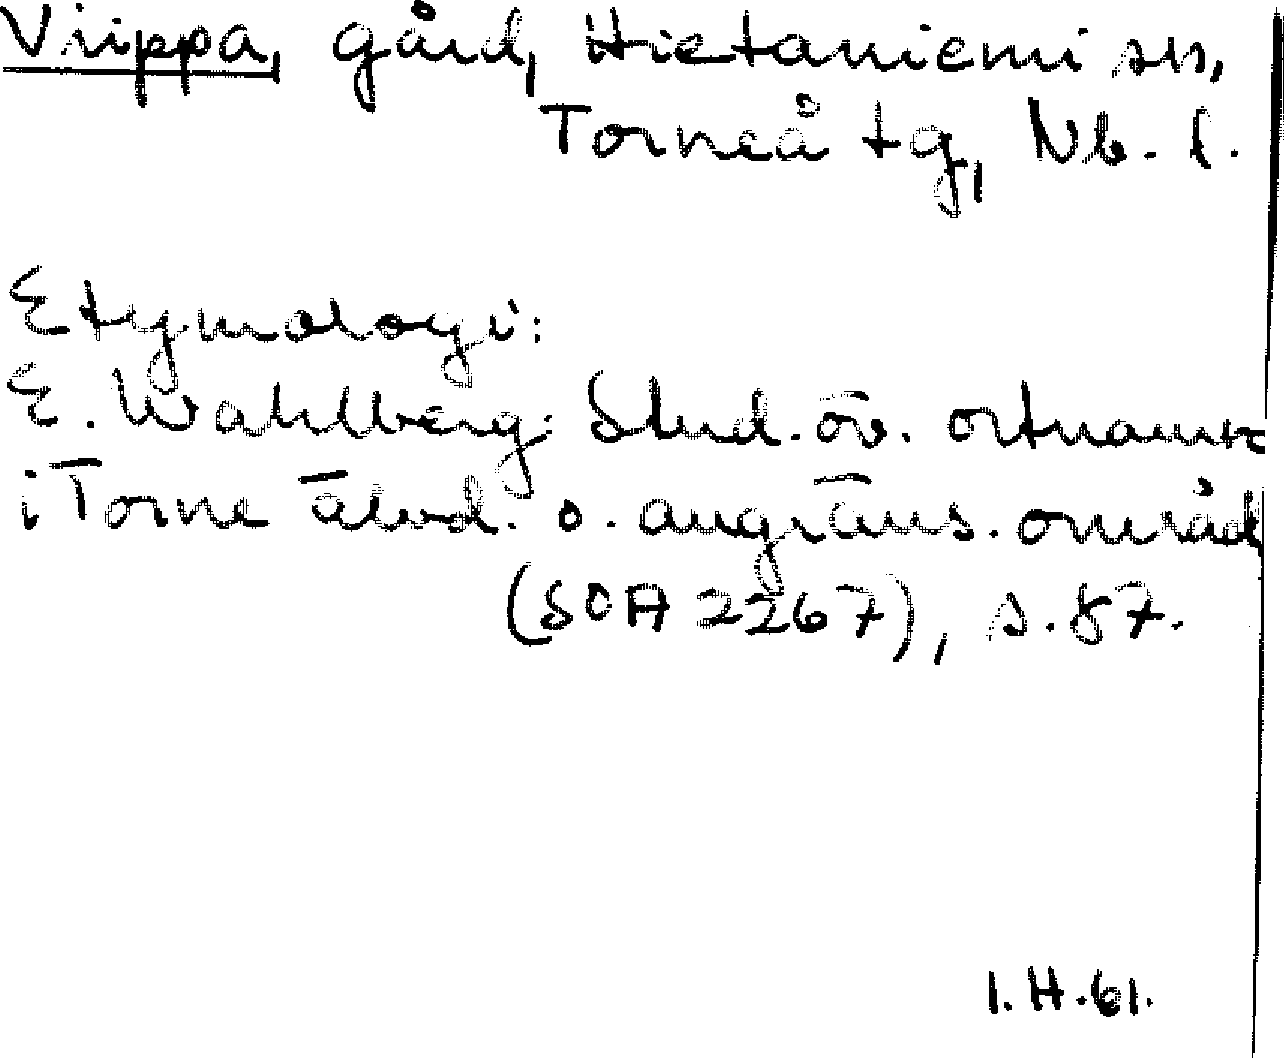 Viippa, gård, Hietaniemi sn,
Torneå tg, Nb. l.
Etymologi:
E. Wahlberg: Stud. öv. ortnamn
i Torne älvd. o. angräns. områd
(SOA 2267), s. 57.
I. H. 61.